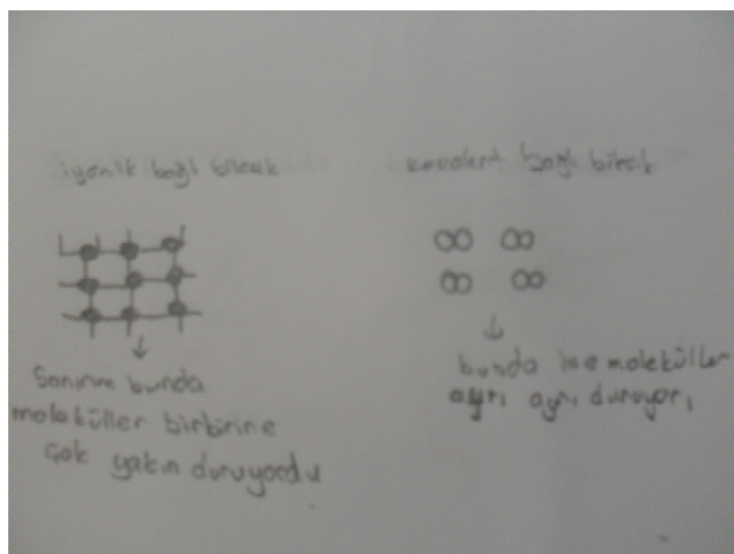 iyonik bağlı bileşik
kovalent bağlı bileşik
Sanırım bunda
moleküller birbirine
çok yakın duruyordu
bunda ise moleküller
ayrı ayrı duruyor